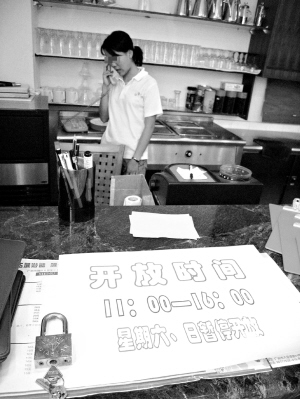 开放时间
11：00—16：00
星期六、日暂停开放